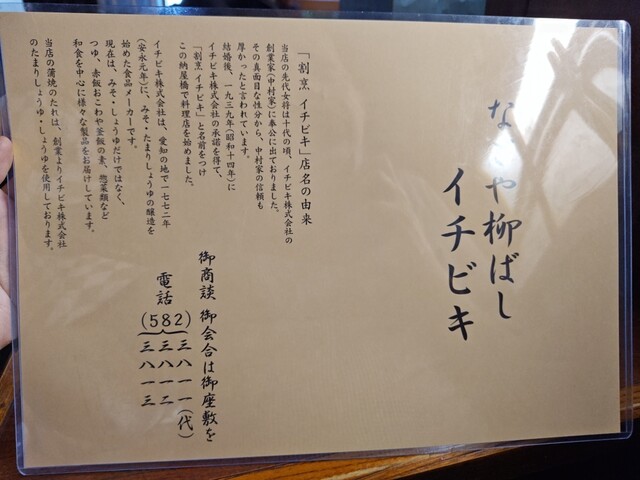 なごや柳ばし
イチビキ
「割烹 イチビキ」店名の由来
当店の先代女将は十代の頃、イチビキ株式会社の
創業家(中村家)に奉公に出ておりました。
その真面目な性分から、中村家の信頼も
厚かったと言われています。
結婚後、一九三九年(昭和十四年)に
イチビキ株式会社の承諾を得て、
「割烹 イチビキ」と名前をつけ
この納屋橋で料理店を始めました。
イチビキ株式会社は、愛知の地で一七七二年
(安永元年)に、みそ・たまりしょうゆの醸造を
始めた食品メーカーです。
現在は、みそ・しょうゆだけではなく、
つゆ、赤飯おこわや釜飯の素、惣菜類など
和食を中心に様々な製品をお届けしています。
当店の蒲焼のたれは、創業よりイチビキ株式会社
のたまりしょうゆ・しょうゆを使用しております。
御商談 御会合は御座敷を
電話(582)三八一一(代)
三八一二
三八一三